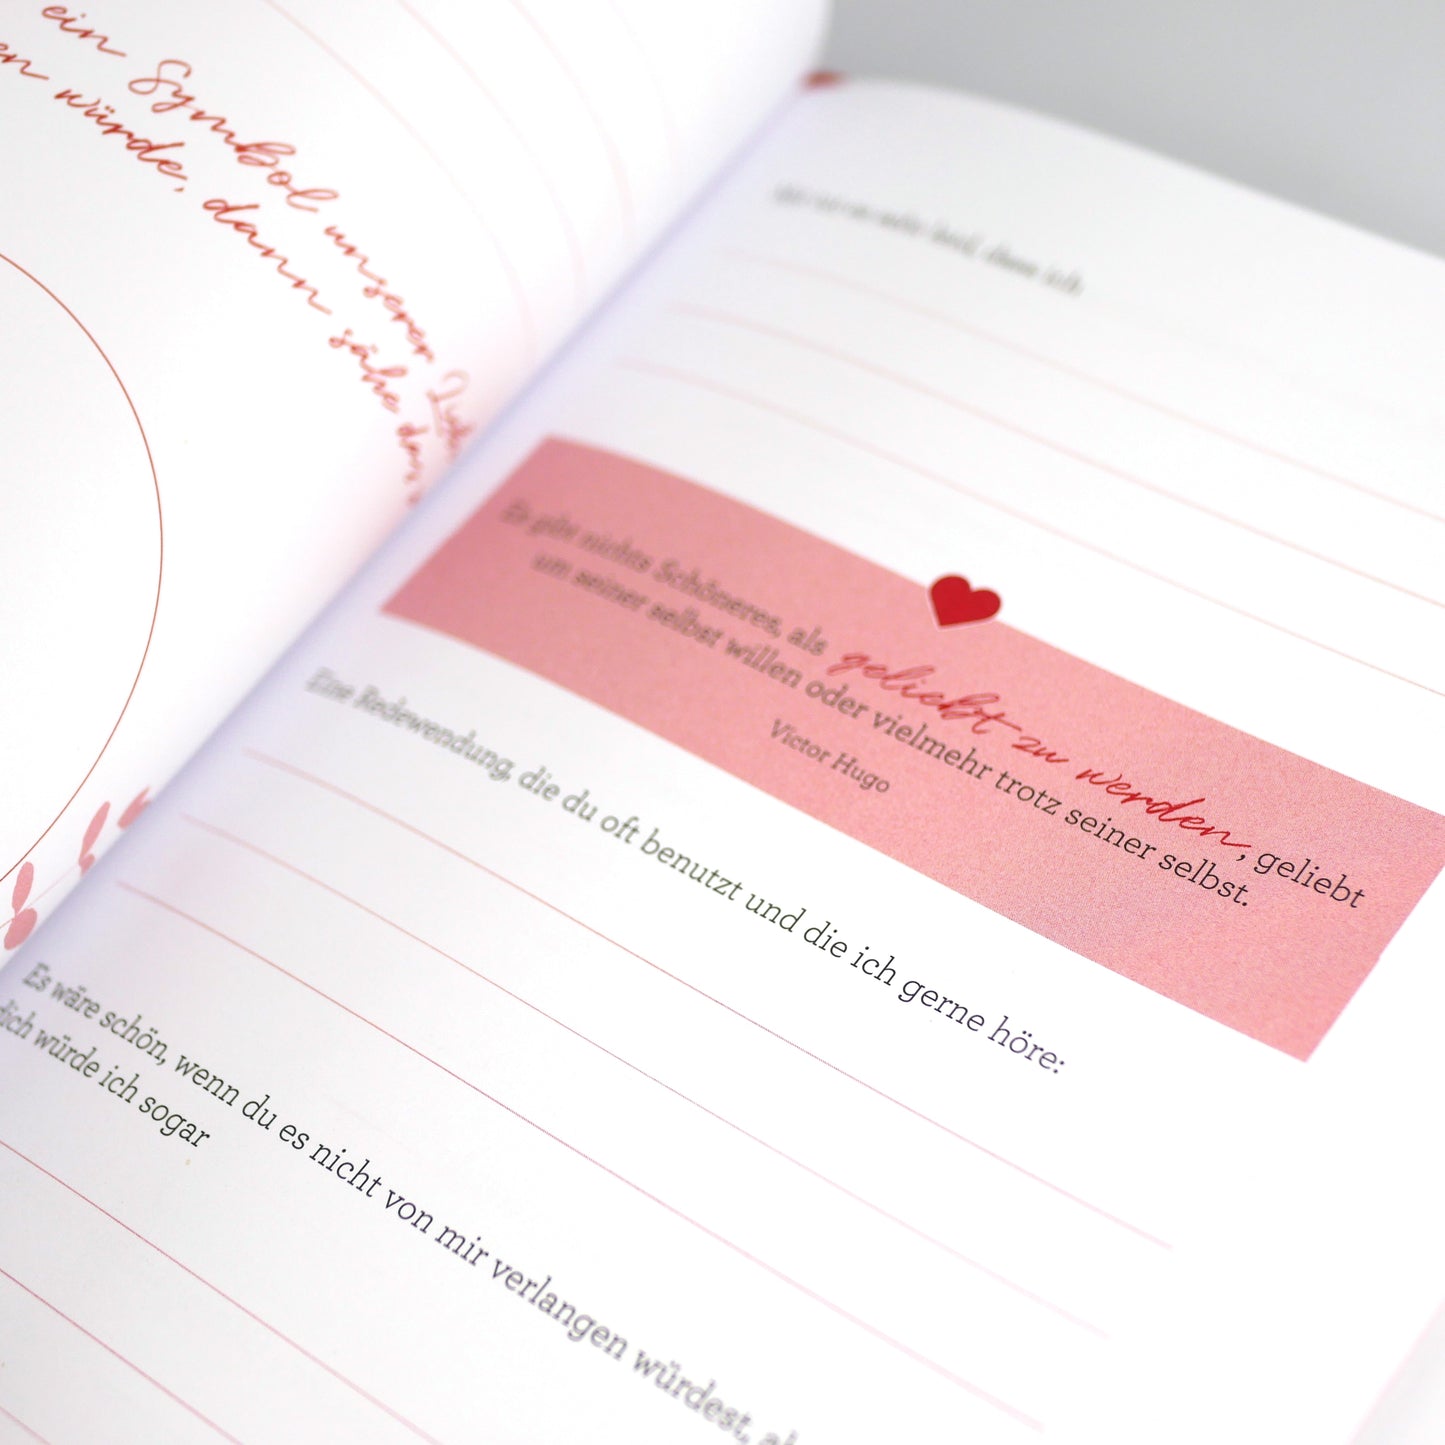 ein Symbol unserer
würde, dann sähe
dass ich
Es gibt nichts Schöneres, als geliebt zu werden, geliebt
um seiner selbst willen oder vielmehr trotz seiner selbst.
Victor Hugo
Eine Redewendung, die du oft benutzt und die ich gerne höre:
Es wäre schön, wenn du es nicht von mir verlangen würdest,
dich würde ich sogar